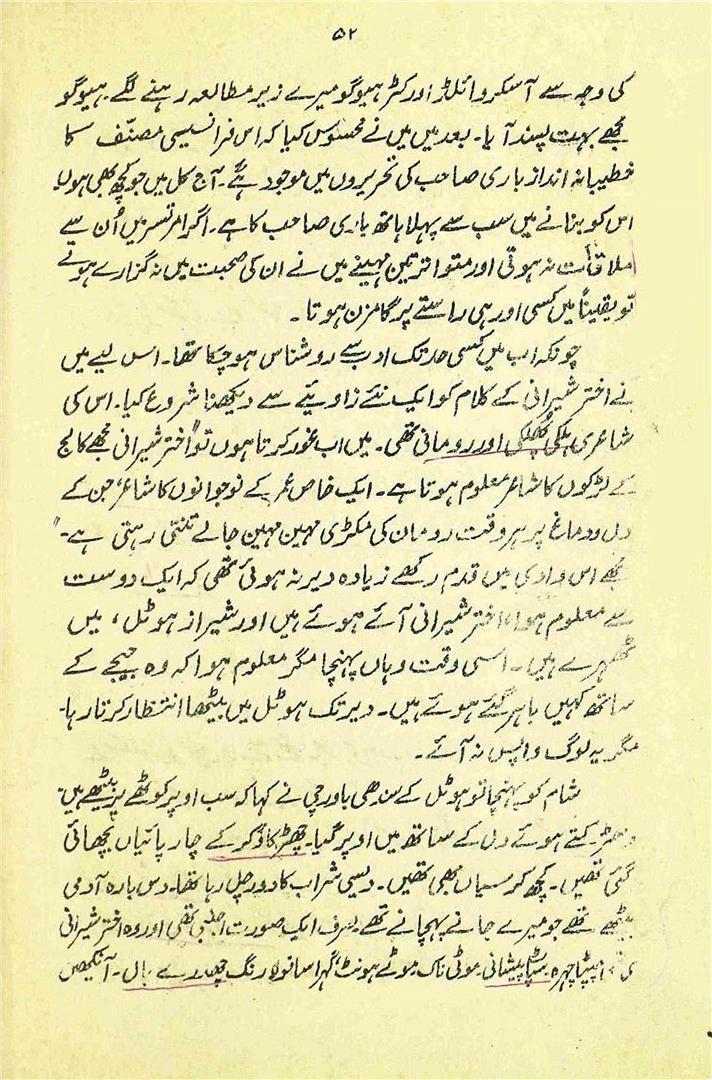 ۵۲
کی وجہ سے آسکر وائلڈ اور وکٹر ہیوگو میرے زیر مطالعہ رہنے لگے۔ ہیوگو
مجھے بہت پسند آیا۔ بعد میں میں نے محسوس کیا کہ اس فرانسیسی مصنّف کا
خطیبانہ انداز باری صاحب کی تحریروں میں موجود ہے۔ آج کل میں جو کچھ بھی ہوں
اس کو بنانے میں سب سے پہلا ہاتھ باری صاحب کا ہے۔ اگر امرتسر میں اُن سے
ملاقات نہ ہوتی اور متواتر تین مہینے میں نے ان کی صحبت میں نہ گزارے ہوتے
تو یقیناً میں کسی اور ہی راستے پر گامزن ہوتا۔
چونکہ اب میں کسی حد تک ادب سے روشناس ہو چکا تھا۔ اس لیے میں
نے اختر شیرانی کے کلام کو ایک نئے زاویئے سے دیکھنا شروع کیا۔ اس کی
شاعری ہلکی پھلکی اور رومانی تھی۔ میں اب غور کرتا ہوں تو "اختر شیرانی مجھے کالج
کے لڑکوں کا شاعر معلوم ہوتا ہے۔ ایک خاص عمر کے نوجوانوں کا شاعر، جن کے
دل و دماغ پر ہر وقت رومان کی مکڑی مہین مہین جالے تنتی رہتی ہے۔"
مجھے اس وادی میں قدم رکھے زیادہ دیر نہ ہوئی تھی کہ ایک دوست
سے معلوم ہوا، اختر شیرانی آئے ہوئے ہیں اور شیراز ہوٹل، میں
ٹھہرے ہیں۔ اسی وقت وہاں پہنچا مگر معلوم ہوا کہ وہ جیجے کے
ساتھ کہیں باہر گئے ہوئے ہیں۔ دیر تک ہوٹل میں بیٹھا انتظار کرتا رہا۔
مگر یہ لوگ واپس نہ آئے۔
شام کو پہنچا تو ہوٹل کے سندھی باورچی نے کہا کہ سب اوپر کوٹھے پر بیٹھے ہیں۔
دھڑکتے ہوئے دل کے ساتھ میں اوپر گیا۔ چھڑکاؤ کر کے چار پائیاں بچھائی
گئی تھیں۔ کچھ کرسیاں بھی تھیں۔ دیسی شراب کا دور چل رہا تھا۔ دس بارہ آدمی
بیٹھے تھے جو میرے جانے پہچانے تھے۔ صرف ایک صورت اجنبی تھی اور وہ اختر شیرانی
کی تھی چپٹا چہرہ۔ سپاٹ پیشانی۔ موٹی ناک۔ موٹے ہونٹ۔ گہرا سانولا رنگ چھدرے بال۔ آنکھیں